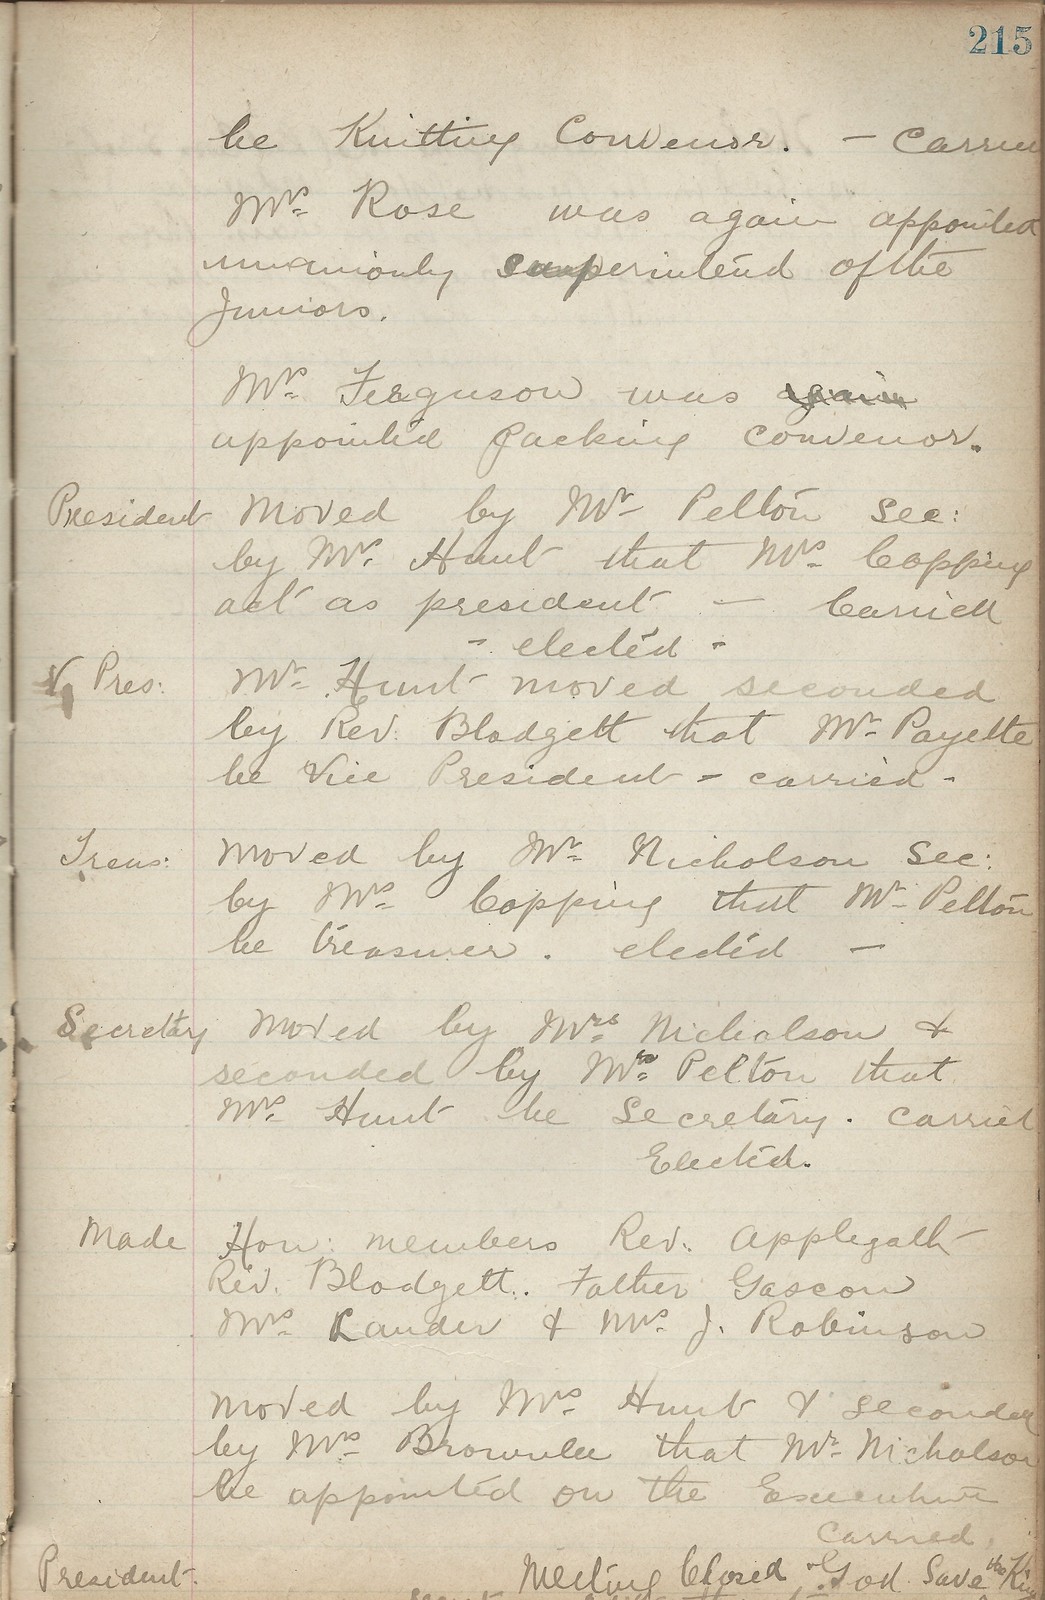 215
be Knitting Convenor. - Carried
Mrs. Rose was again appointed
unanimously superintend of the
Juniors.
Mrs. Ferguson was again
appointed packing convenor.
President Moved by Mr Pelton Sec:
by Mrs. Hunt that Mrs. Copping
act as president - Carried
- elected -
V Pres: Mr Hunt moved seconded
by Rev. Blodgett that Mr Payette
be Vice President - carried -
Treas: Moved by Mr Nicholson Sec:
by Mrs. Copping that Mr Pelton
be treasurer. elected -
Secretary Moved by Mrs Nicholson &
seconded by Mrs. Pelton that
Mrs. Hunt be Secretary. carried
Elected.
Made Hon: members Rev. Applegath
Rev. Blodgett. Father Gascon
Mrs. Lander & Mrs. J. Robinson
Moved by Mrs. Hunt & seconded
by Mrs. Brownlee that Mr. Nicholson
be appointed on the Executive
Carried.
President. Meeting Closed God Save the King